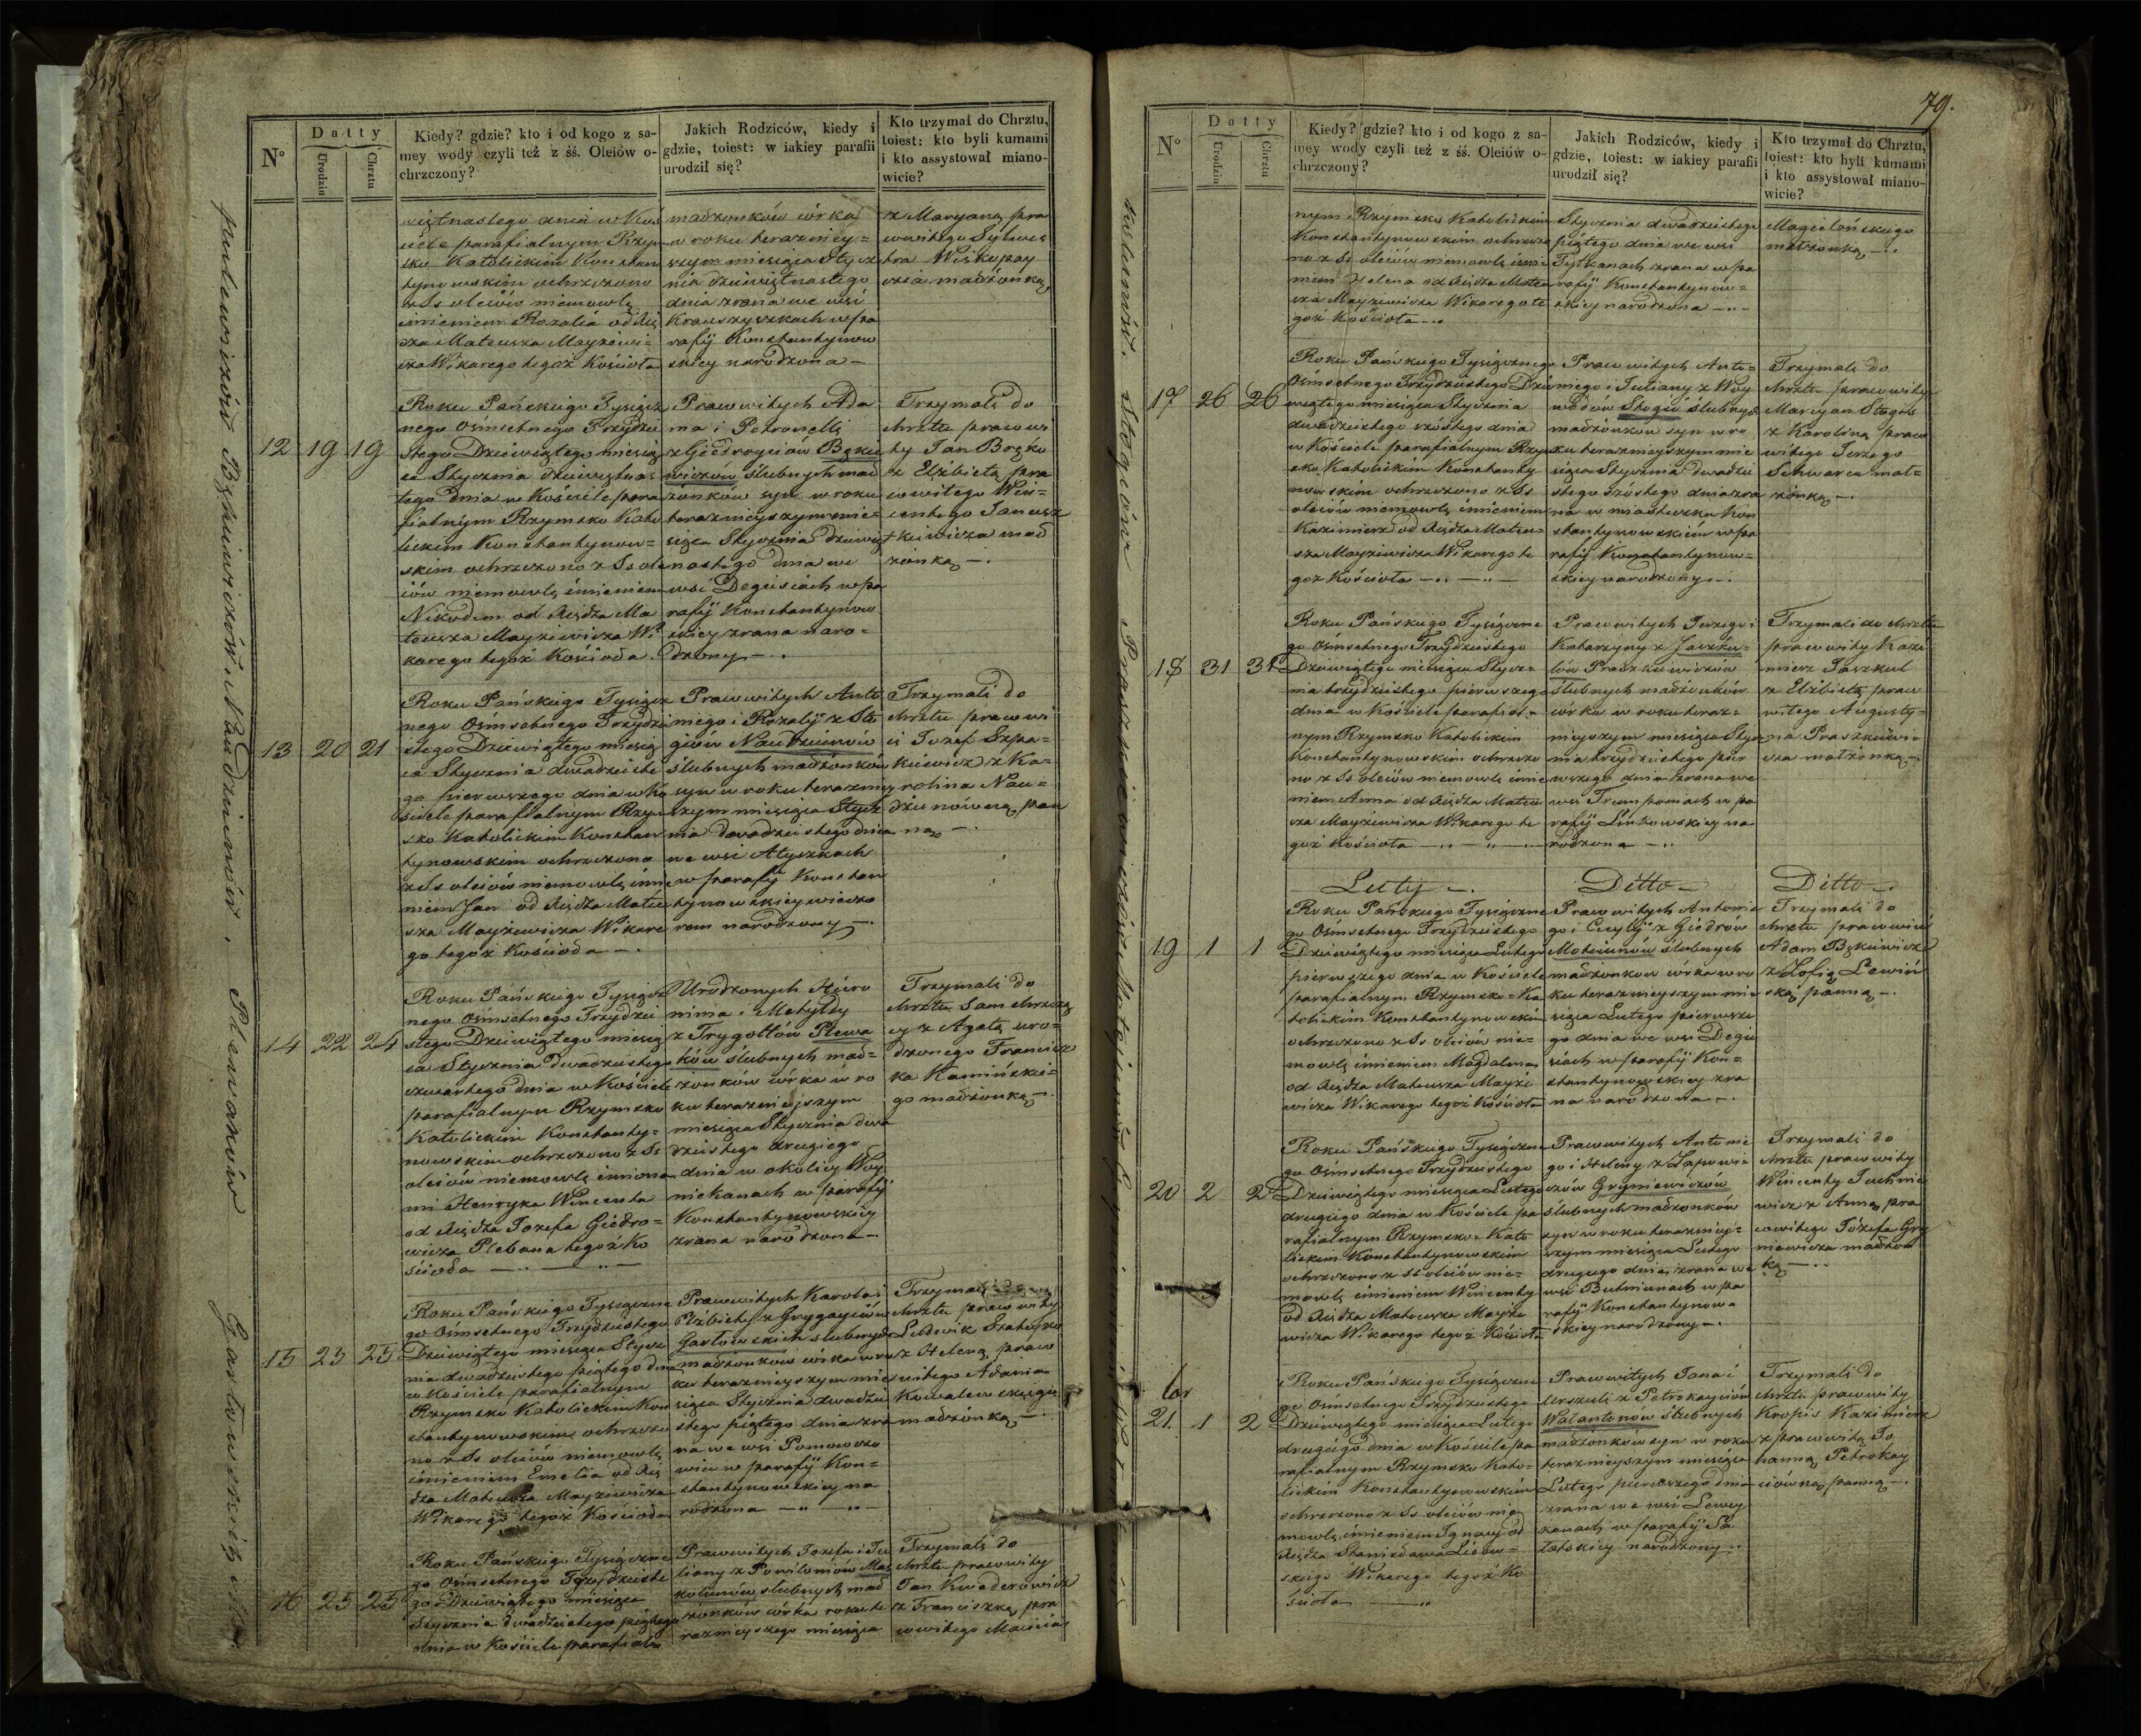 79.
N°
Datty
Urodzin
Chrztu
Kiedy? gdzie? kto i od kogo z sa-
mey wody czyli też z śś. Oleiów o-
chrzczony?
Jakich Rodziców, kiedy i
gdzie, toiest: w iakiey parafii
urodził się?
Kto trzymał do Chrztu,
toiest: kto byli kumami
i kto assystował miano-
wicie?
więtnastego dnia w Koś
ciele parafialnym Rzym
sko Katolickim Konstan
tynowskim ochrzczono
z Ss oleiów niemowlę
imieniem Rozalia od Xię
dza Mateusza Mayzewi-
cza Wikarego tegoż Kościoła
madżonków córka
w roku teraźniey=
szym miesiąca Stycz
nia dziewiętnastego
dnia zrana we wsi
Krauszyszkach w pa
rafij Konstantynow
skiey narodzona —
z Maryaną pra
wowitego Sylwes
tra Wiskupay
cia madżonką
12 19 19
Roku Pańskiego Tysiącz
nego Osmsetnego Trzydzie
stego Dziewiątego miesią
ca Stycznia dziewiętnas
tego dnia w Kościele para
fialnym Rzymsko Kato
lickim Konstantynow=
skim ochrzczono z Ss ole
iów niemowlę imieniem
Nikodem od Xiędza Ma
teusza Mayzewicza Wi
karego tegoż Kościoła.
Prawowitych Ada
ma i Petroneli
z Giedroyciów Bąkie
wiczów ślubnych mad
żonków syn w roku
teraznieyszym mie=
siąca Stycznia dziewięt
nastego dnia we
wsi Degsiach w pa
rafij Konstantynow
skiey zrana naro=
dzony —.
Trzymali do
chrztu prawowi
ty Jan Borzko
z Elżbietą pra
wowitego Win=
centego Janusz
kiewicza mad
żonką —.
13 20 21
Roku Pańskiego Tysiącz
nego Osmsetnego Trzydzie
stego Dziewiątego miesią
ca Stycznia dwadzieste
go pierwszego dnia w Ko
ściele parafialnym Rzym
sko Katolickim Konstan
tynowskim ochrzczono
z Ss oleiów niemowlę imie
niem Jan od Xiędza Mateu
sza Mayzewicza Wikare
go tegoż Kościoła —.
Prawowitych Anto
niego i Rozalij z Sto
giów Naudziunów
ślubnych madżonków
syn w roku teraźniey
szym miesiąca Stycz
nia dwadziestego dnia
we wsi Atyszkach
w parafij Konstan
tynowskiey wieczo
rem narodzony —.
Trzymali do
chrztu prawowi
ci Jozef Szpa=
kiewicz z Ka=
roliną Nau=
dziunowną, pan
ną —.
14 22 24
Roku Pańskiego Tysiącz
nego Osmsetnego Trzydzie
stego Dziewiątego miesią
ca Stycznia dwadziestego
czwartego dnia w Kościele
parafialnym Rzymsko
Katolickim Konstanty=
nowskim ochrzczono z Ss
oleiów niemowlę imiona
mi Henryka Wincenta
od Xiędza Jozefa Giedro=
wicza Plebana tegoż Ko
ścioła —
Urodzonych Hiero
nima i Matyldy
z Trygołtów Plewa
ków ślubnych mad=
żonków córka w ro
ku teraźniejszym
miesiąca Stycznia dwa
dziestego drugiego
dnia w okolicy Woy
niekanach w parafij
Konstantynowskiey
zrana narodzona —
Trzymali do
chrztu Sam chrzczą
cy z Agatą uro=
dzonego Francisz
ka Kamińskie=
go madżonką —.
15 25 25
Roku Pańskiego Tysiączne
go Osmsetnego Trzydziestego
Dziewiątego miesiąca Stycz
nia dwadziestego piątego dnia
w Kościele parafialnym
Rzymsko Katolickim Kon
stantynowskim ochrzczo
no z Ss oleiów niemowlę
imieniem Emelia od Xię
dza Mateusza Mayzewicza
Wikarego tegoż Kościoła
Prawowitych Karola i
Elżbiety z Grygayciów
Garłowskich ślubnych
madżonków córka w ro
ku teraznieyszym mie
siąca Stycznia dwadzie
stego piątego dnia zra
na we wsi Pomowszo
wiu w parafij Kon=
stantynowskiey na
rodzona —
Trzymali do
chrztu prawowity
Ludwik Szatayko
z Heleną praw
witego Adama
Kowalewskiego
madżonką —.
16 25 25
Roku Pańskiego Tysiączne
go Osmsetnego Trzydzieste
go Dziewiątego miesiąca
Stycznia dwadziestego piątego
dnia w Kościele parafial
Prawowitych Jozefa i Ju
liany z Powiloniów Mas
kolunów ślubnych mad
żonków córka roku te
raznieyszego miesiąca
Trzymali do
chrztu prawowity
Jan Kwaderowicz
z Franciszką pra
wowitego Macieia
N°
Datty
Urodzin
Chrztu
Kiedy? gdzie? kto i od kogo z sa-
mey wody czyli też z śś. Oleiów o-
chrzczony?
Jakich Rodziców, kiedy i
gdzie, toiest: w iakiey parafii
urodził się?
Kto trzymał do Chrztu,
toiest: kto byli kumami
i kto assystował miano-
wicie?
nym Rzymsko Katolickim
Konstantynowskim ochrzczo
no z Ss oleiów niemowlę imie
niem Helena od Xiędza Mateu
sza Mayzewicza Wikarego te
goż Kościoła —.
Stycznia dwadziestego
piątego dnia we wsi
Tytkanach zrana w pa
rafij Konstantynow=
skiey narodzona —.
Magielońskiego
małżonką —.
17 26 26
Roku Pańskiego Tysiącznego
Osmsetnego Trzydziestego Dzie
wiątego miesiąca Stycznia
dwadziestego szóstego dnia
w Kościele parafialnym Rzym
sko Katolickim Konstanty
nowskim ochrzczono z Ss
oleiów niemowlę imieniem
Kazimierz od Xiędza Mateu=
sza Mayzewicza Wikarego te
goż Kościoła —
Prawowitych Anto=
niego i Juliany z Woy
wodów Stogiów ślubnych
madżonków syn w ro
ku teraznieyszym mie
siąca Stycznia dwadzie
stego szóstego dnia zra
na w miasteczku Kon
stantynowskiem w pa
rafij Konstantynow=
skiey narodzony —.
Trzymali do
chrztu prawowity
Maryan Stogis
z Karoliną praw
witego Jerzego
Szwarca mał=
żonką —.
18 31 31
Roku Pańskiego Tysiączne
go Osmsetnego Trzydziestego
Dziewiątego miesiąca Stycz=
nia trzydziestego pierwszego
dnia w Kościele parafial=
nym Rzymsko Katolickim
Konstantynowskim ochrzczo
no z Ss oleiów niemowlę imie
niem Anna od Xiędza Mateu
sza Mayzewicza Wikarego te
goż Kościoła —
Prawowitych Jerzego i
Katarzyny z Jaszku=
lów Praszkiewiczów
ślubnych madżonków
córka w roku teraz=
nieyszym miesiąca Stycz
nia trzydziestego pier
wszego dnia zrana we
wsi Trumponiach w pa
rafij Linkowskiey na
rodzona —.
Trzymali do chrztu
prawowity Kazi
mierz Jaszkul
z Elżbietą praw
witego Augusty=
na Praszkiewi=
cza małżonką —.
Luty —.
Ditto —
Ditto —.
19 1 1
Roku Pańskiego Tysiączne
go Osmsetnego Trzydziestego
Dziewiątego miesiąca Lutego
pierwszego dnia w Kościele
parafialnym Rzymsko=Ka
tolickim Konstantynowskim
ochrzczono z Ss oleiów nie=
mowlę imieniem Magdalena
od Xiędza Mateusza Mayze
wicza Wikarego tegoż Kościoła
Prawowitych Antonie
go i Cecylij z Giedrów
Mateiunów ślubnych
madżonków córka w ro
ku teraznieyszym mie
siąca Lutego pierwsze
go dnia we wsi Degu
siach w parafij Kon=
stantynowskiey zra
na narodzona —.
Trzymali do
chrztu prawowici
Adam Bąkiewicz
z Zofią Lewiń
ską panną —.
20 2 2
Roku Pańskiego Tysiączne
go Osmsetnego Trzydziestego
Dziewiątego miesiąca Lutego
drugiego dnia w Kościele pa
rafialnym Rzymsko=Kato
lickim Konstantynowskim
ochrzczono z Ss oleiów nie=
mowlę imieniem Wincenty
od Xiędza Mateusza Mayze
wicza Wikarego tegoż Kościoła
Prawowitych Antonie
go i Heleny z Łapowi=
czów Gryniewiczów
ślubnych madżonków
syn w roku teraźniey=
szym miesiąca Lutego
drugiego dnia zrana we
wsi Butniunach w pa
rafij Konstantynow=
skiey narodzony —.
Trzymali do
chrztu prawowity
Wincenty Juchnie
wicz z Anną pra
wowitego Jozefa Gry
niewicza madżon
ką —.
21. 1 2
Roku Pańskiego Tysiączne
go Osmsetnego Trzydziestego
Dziewiątego miesiąca Lutego
drugiego dnia w Kościele pa
rafialnym Rzymsko Kato=
lickim Konstantynowskim
ochrzczono z Ss oleiów nie
mowlę imieniem Ignacy od
Xiędza Stanisława Lisow=
skiego Wikarego tegoż Ko
ścioła —
Prawowitych Jana i
Urszuli z Petrokayciów
Walantonów ślubnych
madżonków syn w roku
teraznieyszym miesiąca
Lutego pierwszego dnia
zrana we wsi Lewey
kanach w parafij Sa
łatskiey narodzony —.
Trzymali do
chrztu prawowity
Kropis Kazimierz
z prawowitą Jo
hanną Petrokay
ciówną, panną —.